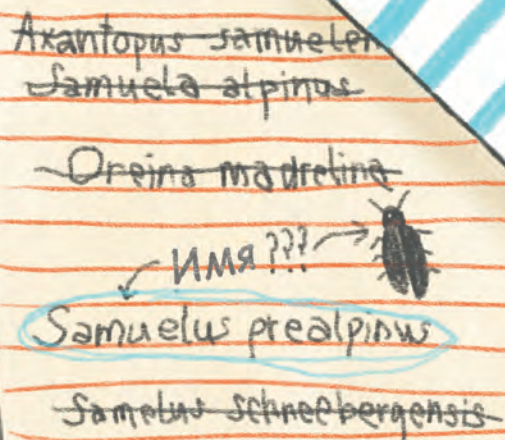 Axantopus samuelen
Samuela alpinus
Oreina madrelina
Имя ???
Samuelus prealpinus
Samelus schneebergensis